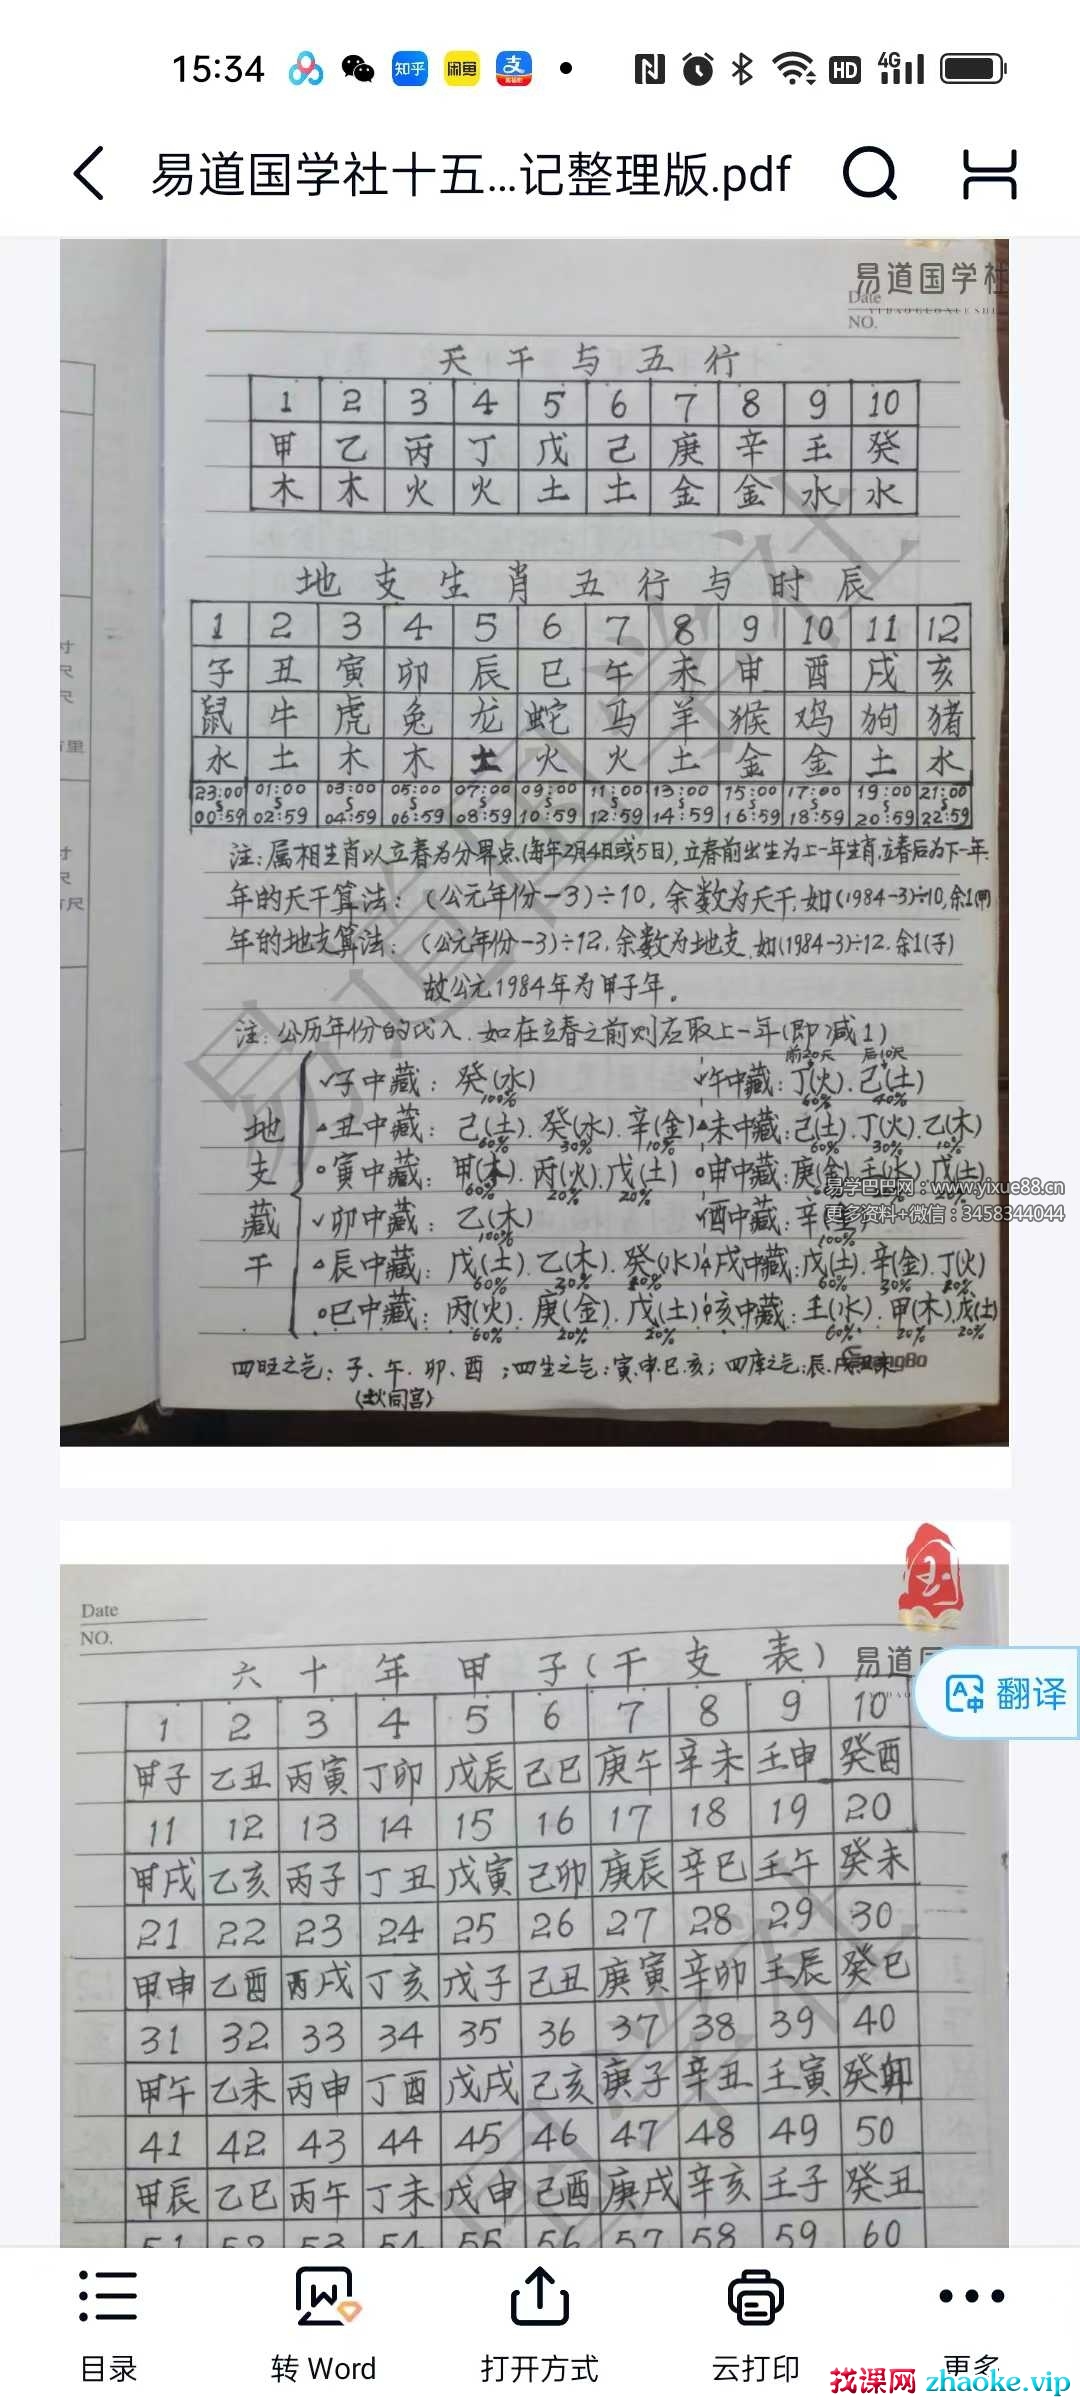 15:34 知乎 闲鱼 支 HD 4G
易道国学社十五...记整理版.pdf
易道国学社
Date
NO.
天干与五行
1 2 3 4 5 6 7 8 9 10
甲 乙 丙 丁 戊 己 庚 辛 壬 癸
木 木 火 火 土 土 金 金 水 水
地支生肖五行与时辰
1 2 3 4 5 6 7 8 9 10 11 12
子 丑 寅 卯 辰 巳 午 未 申 酉 戌 亥
鼠 牛 虎 兔 龙 蛇 马 羊 猴 鸡 狗 猪
水 土 木 木 土 火 火 土 金 金 土 水
23:00 01:00 03:00 05:00 07:00 09:00 11:00 13:00 15:00 17:00 19:00 21:00
00:59 02:59 04:59 06:59 08:59 10:59 12:59 14:59 16:59 18:59 20:59 22:59
注:属相生肖以立春为分界点,(每年2月4日或5日),立春前出生为上一年生肖,立春后为下一年.
年的天干算法:(公元年份-3)÷10,余数为天干,如(1984-3)÷10,余1(甲)
年的地支算法:(公元年份-3)÷12,余数为地支,如(1984-3)÷12.余1(子)
故公元1984年为甲子年。
注:公历年份的代入.如在立春之前则应取上一年(即减1)
前20天 后10天
地支藏干
子中藏:癸(水) 午中藏:丁(火).己(土)
100% 60% 40%
丑中藏:己(土).癸(水).辛(金) 未中藏:己(土).丁(火).乙(木)
60% 30% 10% 60% 30% 10%
寅中藏:甲(木).丙(火).戊(土) 申中藏:庚(金).壬(水).戊(土)
60% 20% 20%
易学巴巴网:www.yixue88.cn
更多资料+微信:3458344044
卯中藏:乙(木) 酉中藏:辛(金)
100% 100%
辰中藏:戊(土).乙(木).癸(水) 戌中藏:戊(土).辛(金).丁(火)
60% 30% 60% 30%
巳中藏:丙(火).庚(金).戊(土) 亥中藏:壬(水).甲(木).戊(土)
60% 20% 20% 60% 20% 20%
四旺之气:子、午.卯、酉;四生之气:寅.申.巳.亥;四库之气:辰.戌.丑.未
易道国学社
Date
NO.
六十年甲子(干支表)
易道国
翻译
1 2 3 4 5 6 7 8 9 10
甲子 乙丑 丙寅 丁卯 戊辰 己巳 庚午 辛未 壬申 癸酉
11 12 13 14 15 16 17 18 19 20
甲戌 乙亥 丙子 丁丑 戊寅 己卯 庚辰 辛巳 壬午 癸未
21 22 23 24 25 26 27 28 29 30
甲申 乙酉 丙戌 丁亥 戊子 己丑 庚寅 辛卯 壬辰 癸巳
31 32 33 34 35 36 37 38 39 40
甲午 乙未 丙申 丁酉 戊戌 己亥 庚子 辛丑 壬寅 癸卯
41 42 43 44 45 46 47 48 49 50
甲辰 乙巳 丙午 丁未 戊申 己酉 庚戌 辛亥 壬子 癸丑
51 52 53 54 55 56 57 58 59 60
国学社
目录 转 Word 打开方式 云打印 更多
找课网 zhaoke.vip